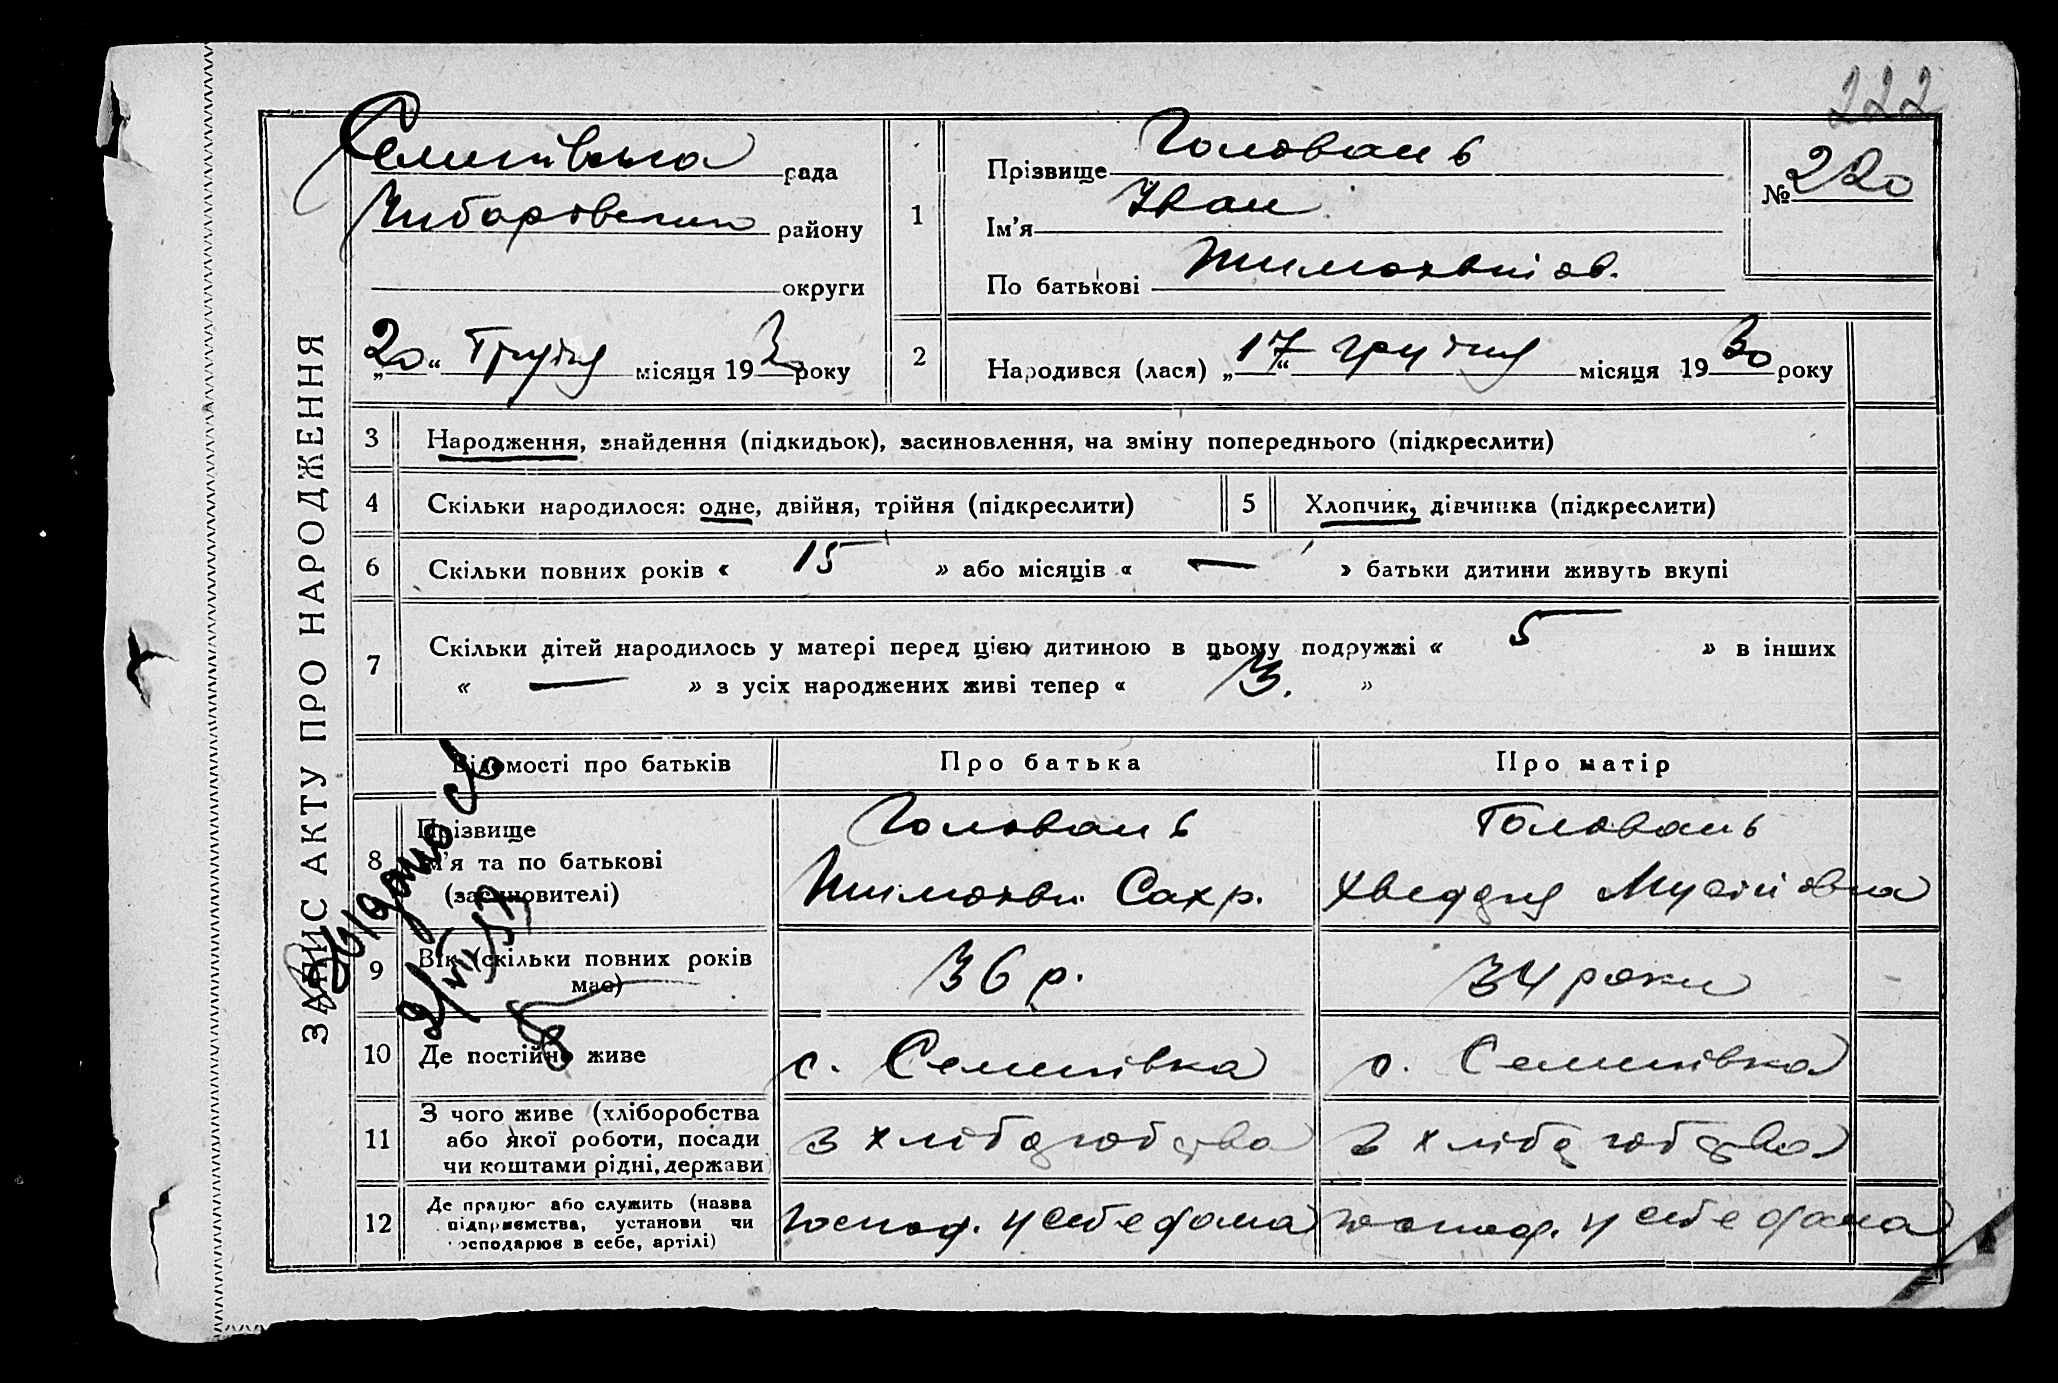 222
ЗАПИС АКТУ ПРО НАРОДЖЕННЯ
рада
району
округи
„20“ Грудня місяця 1930 року
1
Прізвище Головань
Ім'я Іван
По батькові Тимохвійов.
№ 220
2
Народився (лася) „17“ грудня місяця 1930 року
3 Народження, знайдення (підкидьок), засиновлення, на зміну попереднього (підкреслити)
4 Скільки народилося: одне, двійня, трійня (підкреслити)
5 Хлопчик, дівчинка (підкреслити)
6 Скільки повних років « 15 » або місяців « — » батьки дитини живуть вкупі
7 Скільки дітей народилось у матері перед цією дитиною в цьому подружжі « 5 » в інших
« — » з усіх народжених живі тепер « 3. »
Відомості про батьків
Про батька
Про матір
8 Прізвище
ім'я та по батькові
(засиновителі)
Головань
Тимохвій Сахр.
Головань
Хведдя Мусіївна
9 Вік (скільки повних років
має)
36 р.
34 роки
10 Де постійно живе
с. Семенівка
с. Семенівка
11 З чого живе (хліборобства
або якої роботи, посади
чи коштами рідні, держави
З хліборобства
З хліборобства
12 Де працює або служить (назва
підприємства, установи чи
господарює в себе, артілі)
господ. у себе дома
господ. у себе дома